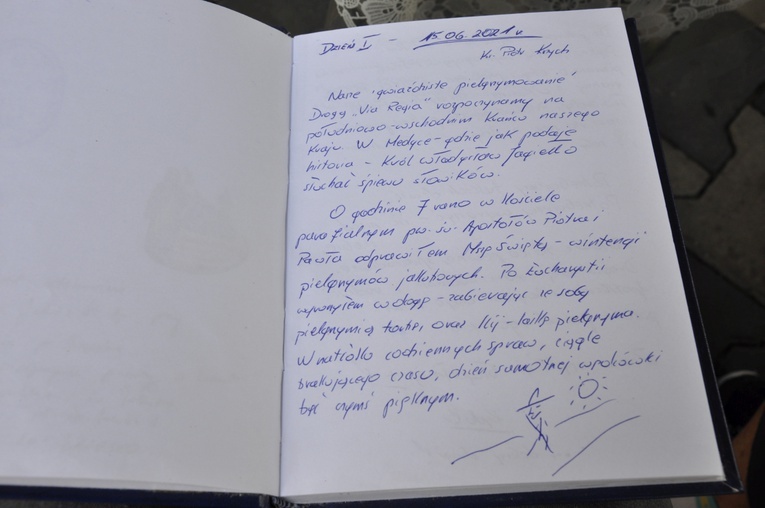 Dzień I – 15.06.2021 r.
Ks. Piotr
Nasze "gwiaździste pielgrzymowanie"
Drogą "Via Regia" rozpoczynamy na
południowo-wschodnim krańcu naszego
kraju. W Medyce – gdzie jak podaje
historia – Król Władysław Jagiełło
słuchał śpiewu słowików.
O godzinie 7 rano w Kościele
parafialnym pw. św. Apostołów Piotra i
Pawła odprawiłem Mszę Świętą – w intencji
pielgrzymów jakubowych. Po Eucharystii
wyruszyłem w drogę – zabierając ze sobą
pielgrzymią oraz kij – laskę pielgrzyma.
W natłoku codziennych spraw, ciągle
brakującego czasu, dzień samotnej wędrówki
być czymś pięknym.